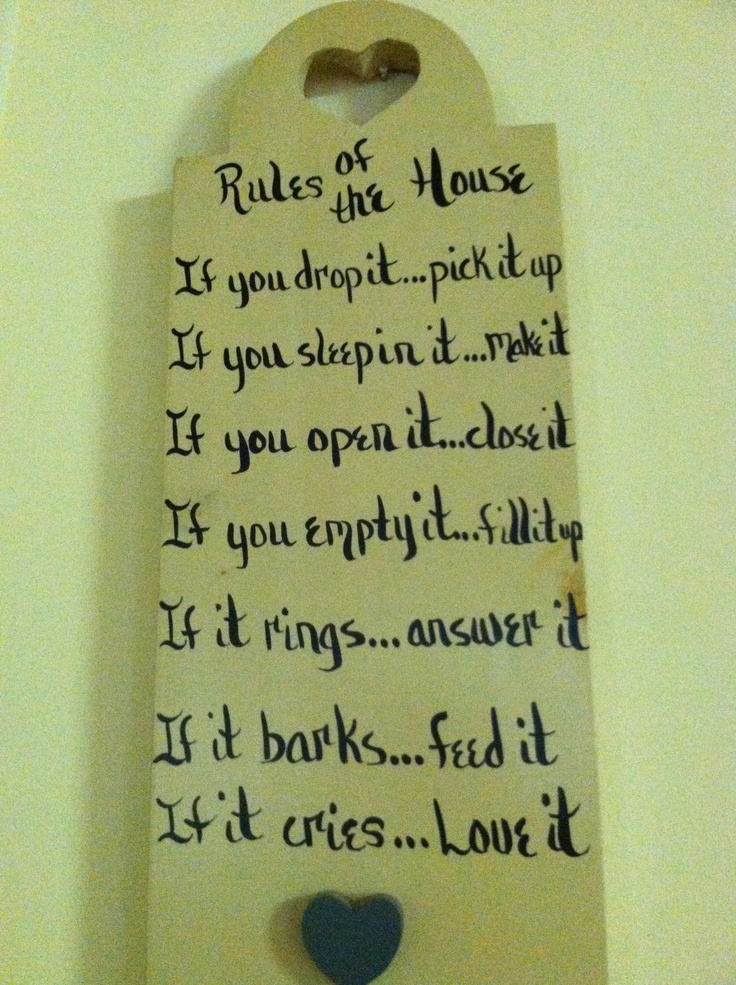 Rules of the House
If you drop it...pick it up
If you sleep in it...make it
If you open it...close it
If you empty it...fill it up
If it rings...answer it
If it barks...feed it
If it cries...Love it